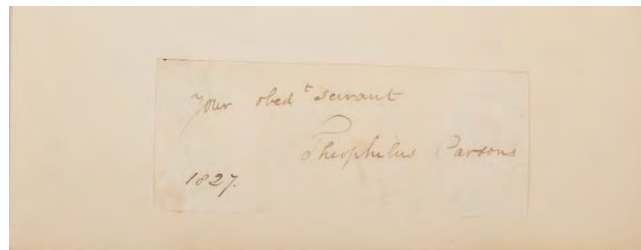 Your obedt servant
Theophilus Parsons
1827.